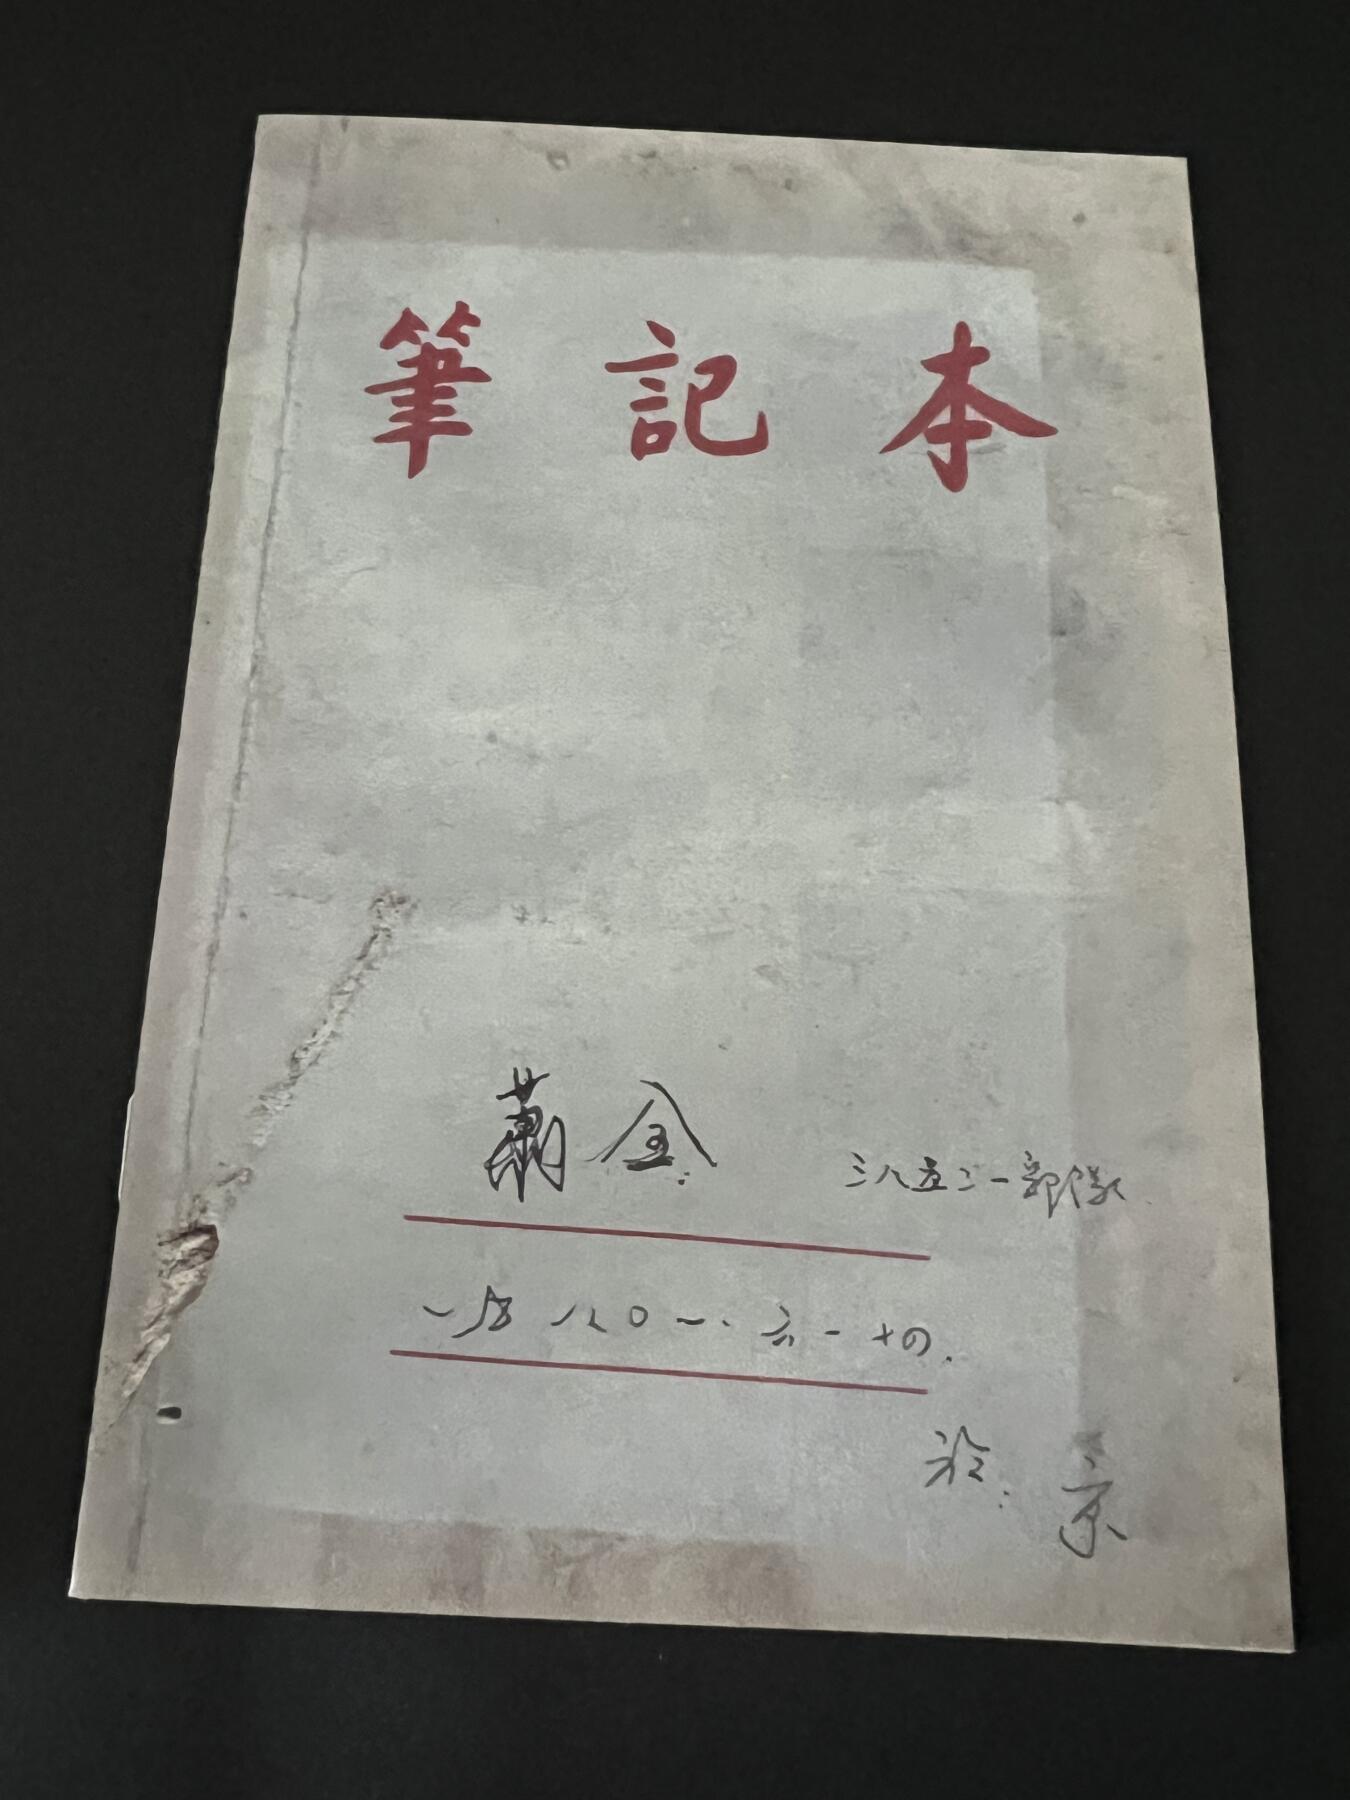 筆記本
蕭金 三八五二一部隊
一九八〇一·六一十四.
於: 京